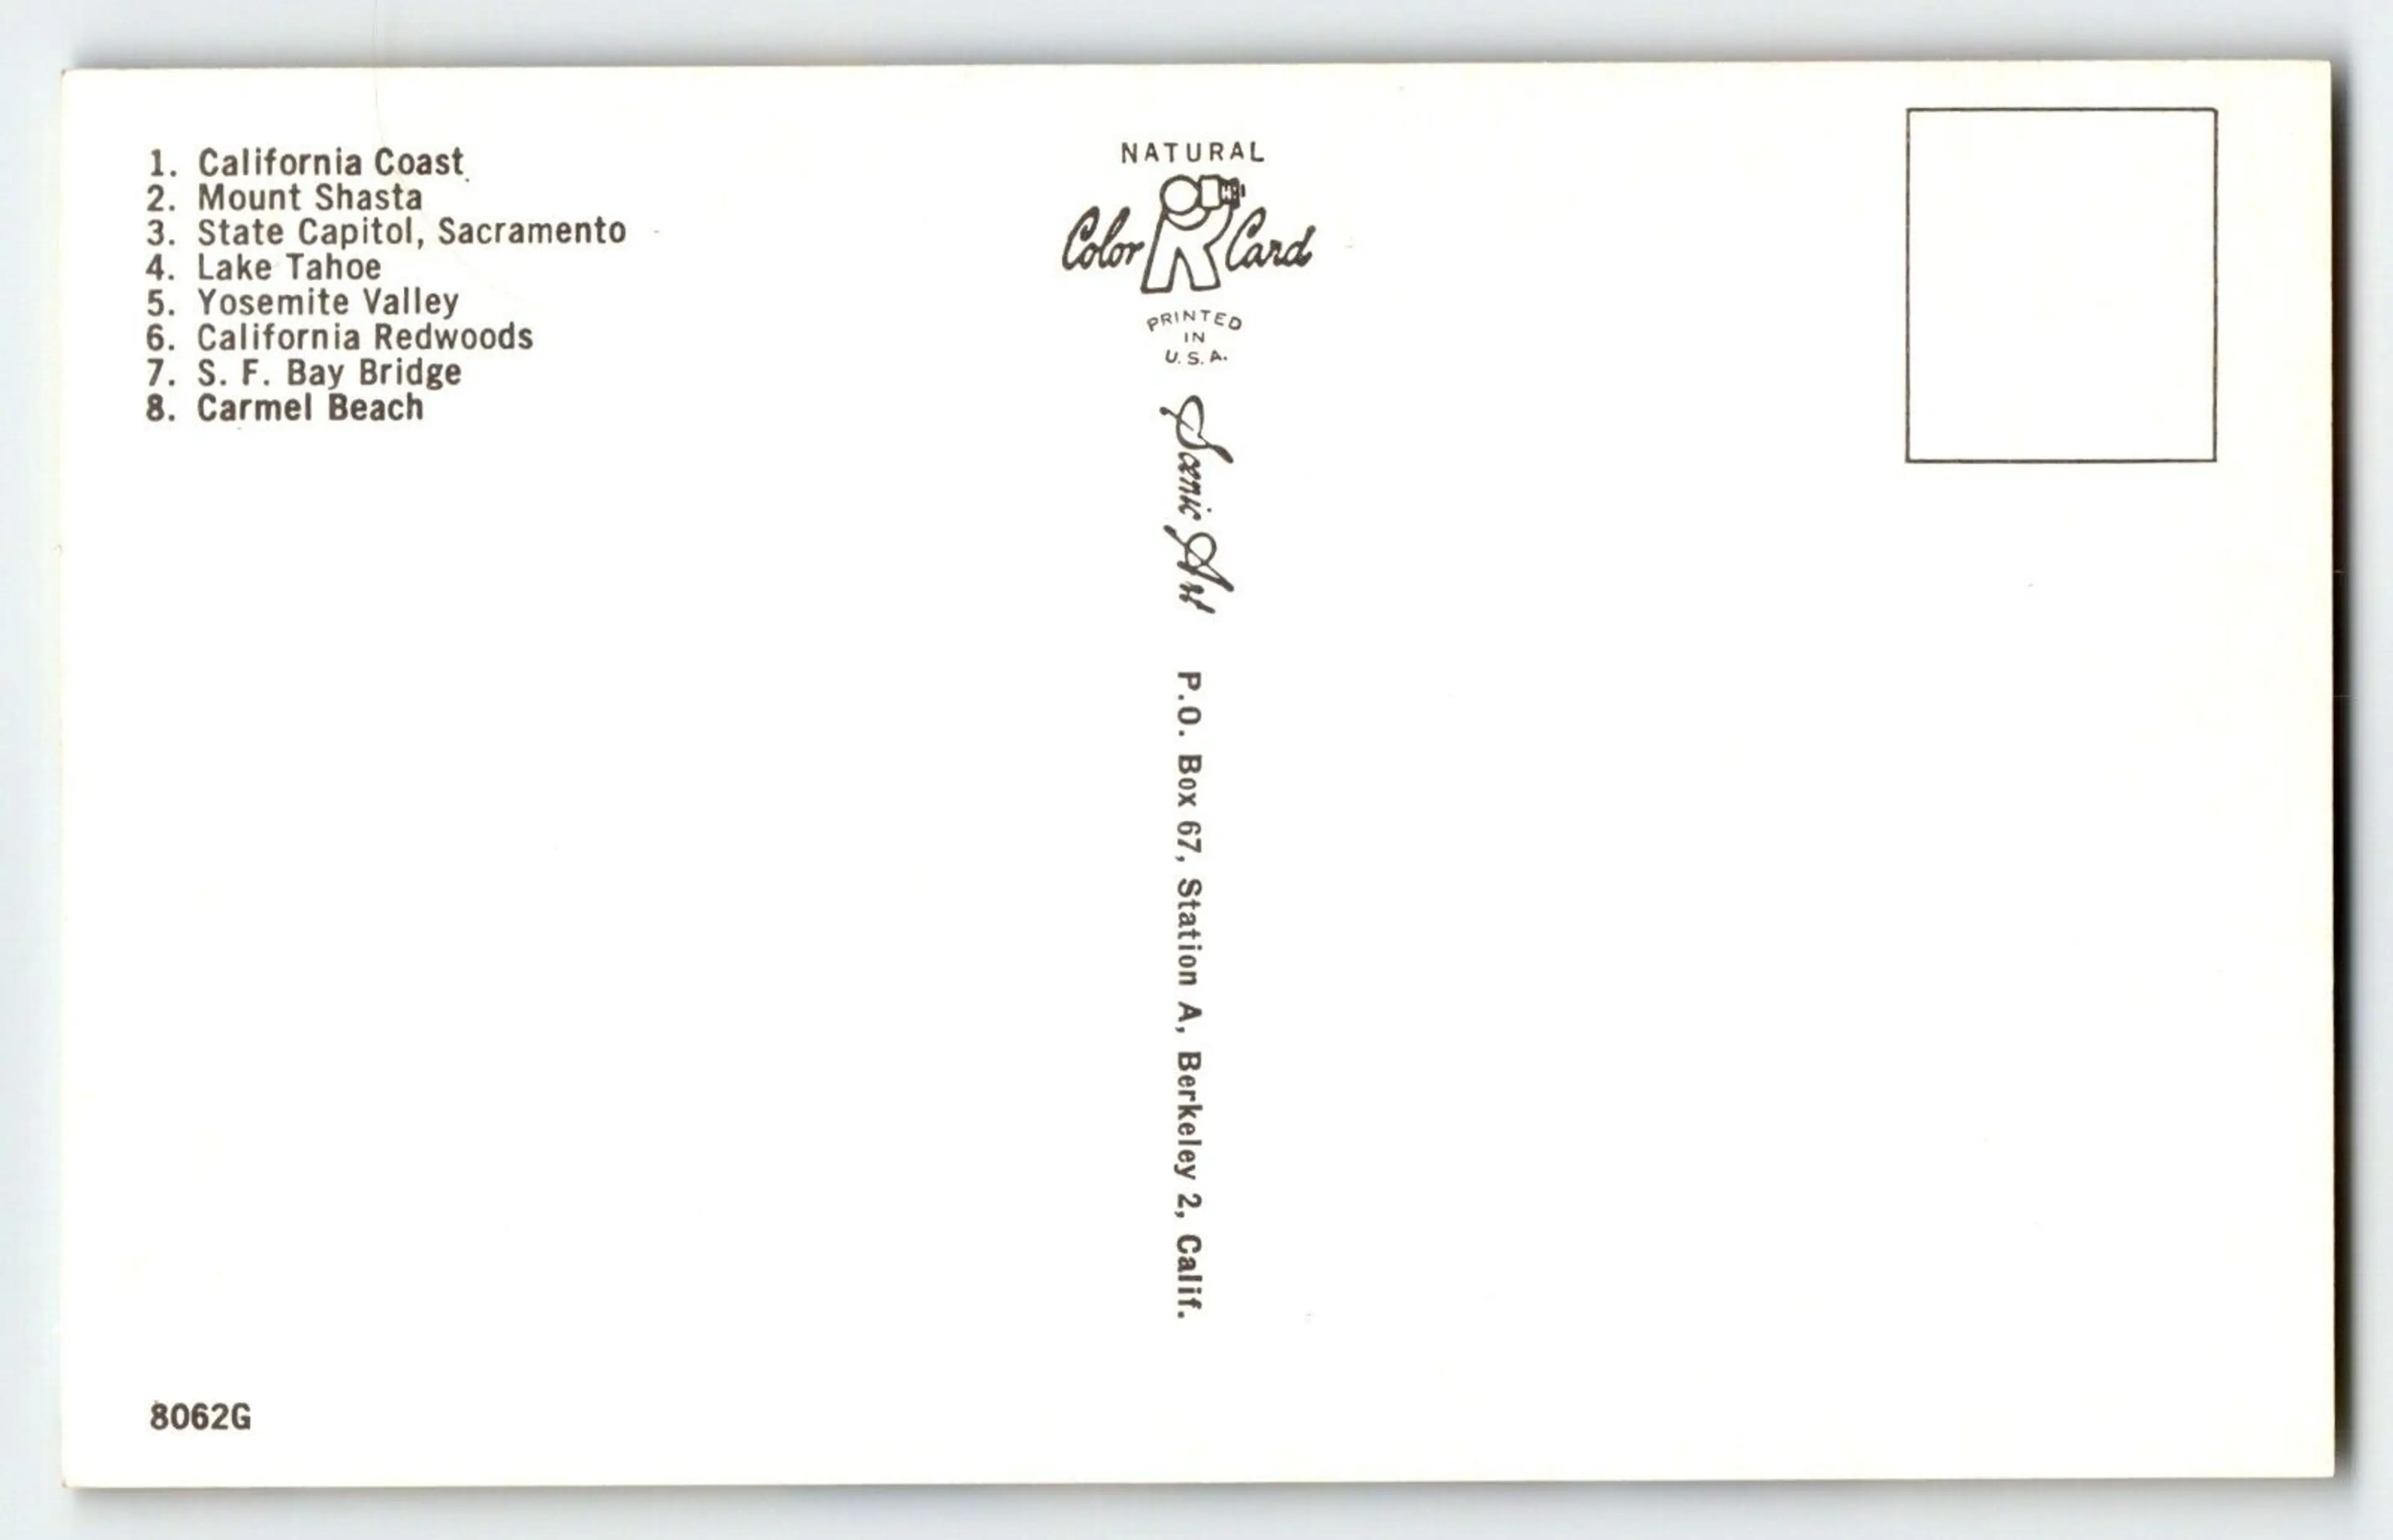 1. California Coast
2. Mount Shasta
3. State Capitol, Sacramento
4. Lake Tahoe
5. Yosemite Valley
6. California Redwoods
7. S. F. Bay Bridge
8. Carmel Beach
NATURAL
Color R Card
PRINTED
IN
U. S. A.
Scenic Art
P.O. Box 67, Station A, Berkeley 2, Calif.
8062G